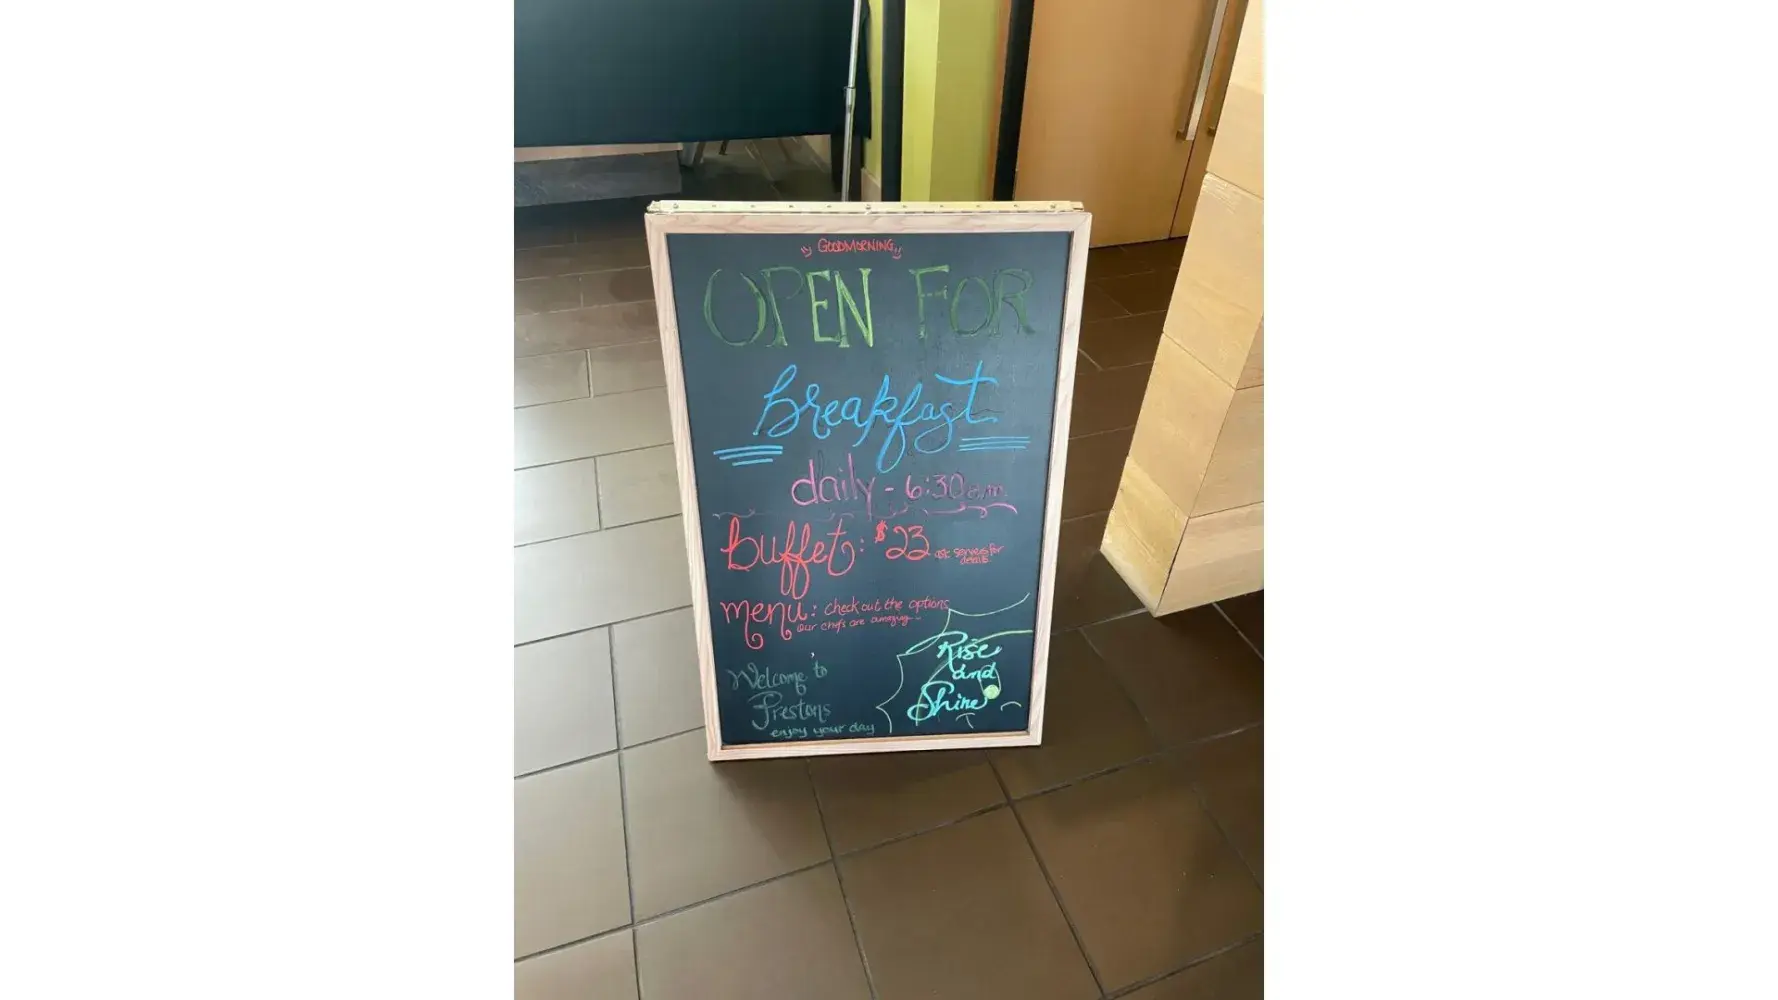 GOODMORNING
OPEN FOR
Breakfast
daily - 6:30 a.m.
Buffet: $23 ask servers for
details
menu: check out the options
our chefs are amazing
Welcome to
Prestons
enjoy your day
Rise
and
Shine